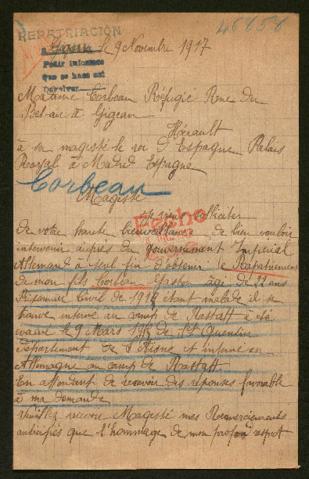 REPATRIACIÓN
46858
Gigean le 9 Novembre 1917
Pedir informes
Que se haga
Madame Corbeau Réfugié Rue du
Bel-air à Gigean
Hérault
à sa magesté le roi d'Espagne Palais
Royal à Madrid Espagne
Corbeau
Magesté
je viens solliciter
de votre haute bienveillance de bien vouloir
intervenir auprès du gouvernement Impérial
Allemand à seul fin d'obtenir le Rapatriement
de mon fils Corbeau Gaston âgé de 22 ans
Prisonnier Civil de étant malade il se
trouve interné au camp de Rastatt a été
évacué le 9 Mars de St Quentin
département de l'Aisne et interné en
Allemagne au camp de Rastatt.
En attendant de recevoir des réponses favorable
à ma demande
Veuillez recevoir Magesté mes Remerciements
anticipés que l'hommage de mon profond respect